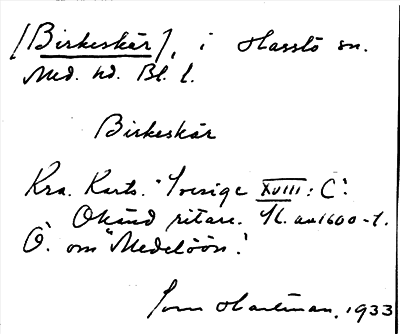 [Birkeskär], i Hasslö sn.
Med. hd. Bl. l.
Birkeskär
Kra. Kart. "Sverige XVIII: C".
Okänd ritare. Sl. av 1600-t.
Ö. om "Medelöön".
Jorn Hartman, 1933